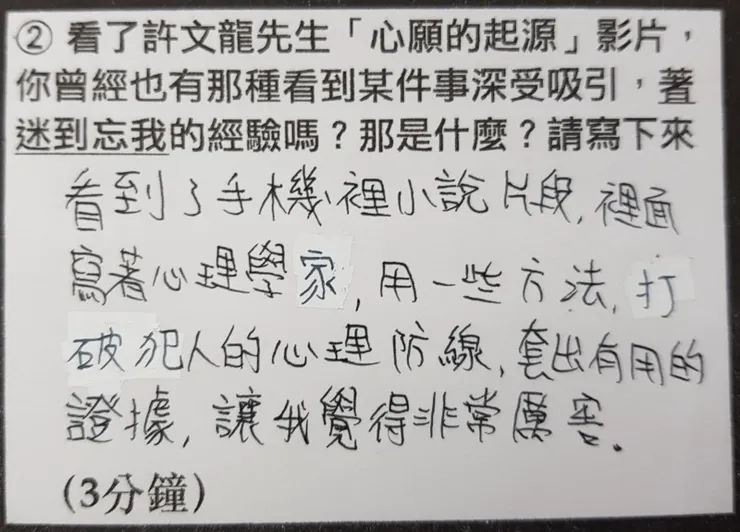 ② 看了許文龍先生「心願的起源」影片，
你曾經也有那種看到某件事深受吸引，著
迷到忘我的經驗嗎？那是什麼？請寫下來
看到了手機裡小說片段，裡面
寫著心理學家，用一些方法，打
破犯人的心理防線，套出有用的
證據，讓我覺得非常厲害．
(3分鐘)